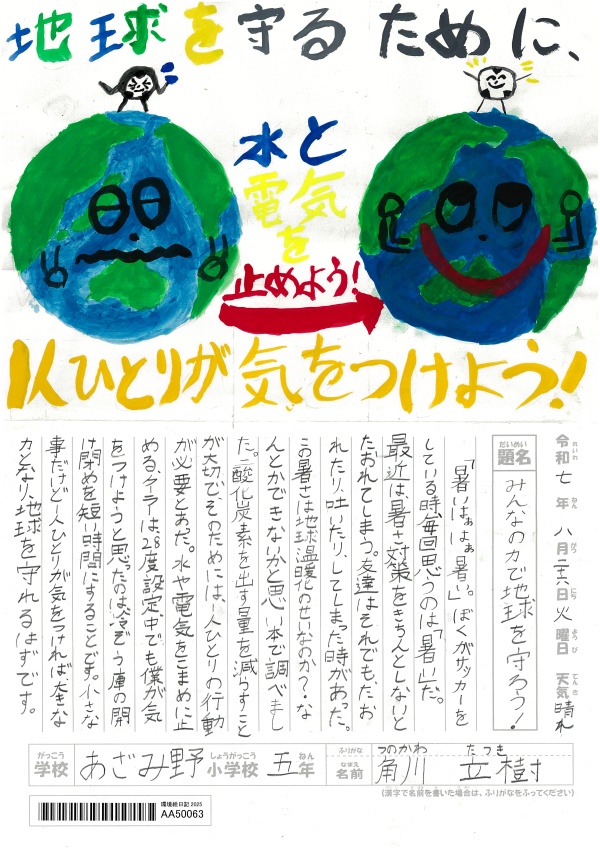 地球を守るために、
水と
電気
を
止めよう!
1人ひとりが気をつけよう!
令和七年八月二十六日火曜日 天気晴れ
れいわ ねん がつ にち ようび てんき
だいめい
題名 みんなの力で地球を守ろう!
「暑いなぁよぁ暑い」。ぼくがサッカーを
している時毎回思うのは「暑い」だ。
最近は、暑さ対策をきちんとしないと
たおれてしまう。友達はそれでも、たお
れたり、吐いたり、してしまった時があった。
この暑さは地球温暖化のせいなのか?な
んとかできないかと思い本で調べまし
た。二酸化炭素を出す量を減らすこと
が大切で、そのためには、1人ひとりの行動
が必要とあった。水や電気をこまめに止
める、クーラーは、28度設定中でも僕が気
をつけようと思ったのは冷ぞう庫の開
け閉めを短い時間にすることです。小さな
事だけど1人ひとりが気をつければ大きな
力となり、地球を守れるはずです。
がっこう しょうがっこう ねん ふりがな つのかわ たつき
学校 あざみ野小学校 五年 なまえ 名前 角川 立樹
(漢字で名前を書いた場合は、ふりがなをふってください)
環境絵日記2025
AA50063